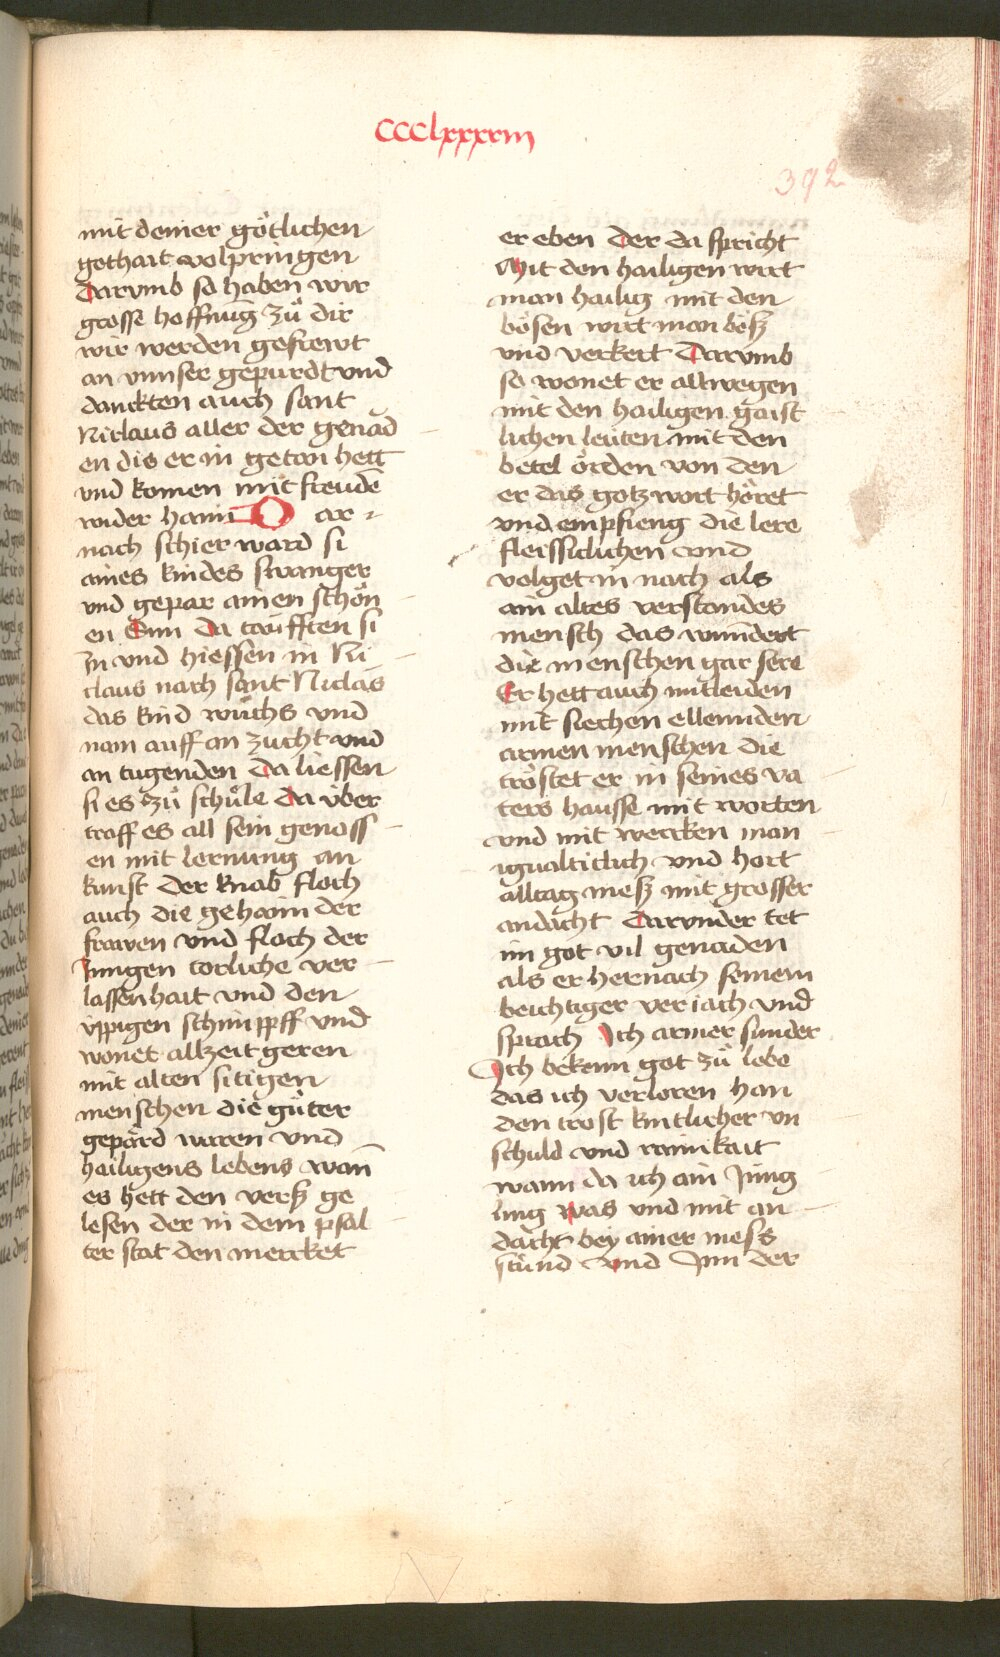 CCClxxxxiii
392
mit deiner götlichen
gethait volpringen
Darvmb so haben wir
grosse hoffnūg zů dir
wir werden gefrewt
an vnnser gepurdt vnd
danckten auch sant
Niclaus aller der genad
en die er in getan hett
vnd komen mit freude
wider haim Dar
nach schier ward si
aines kindes swanger
vnd gepar ainen schön
en Sun Da taufften si
In vnd hiessen in Ni
claus nach sant Niclas
das kind wůchs vnd
nam auff an zucht vnd
an tugenden Da liessen
si es zů schůle Da über
traff es all sein genoss
en mit lernung an
kunst der knab floch
auch die gehaim der
frawen vnd floch der
Jungen torliche ver
lassenhait vnd den
üppigen schimppff vnd
wonet allzeit geren
mit alten sitigen
menschen die gůter
gepärd waren vnd
heiligens lebens wan̄
es hett den versz ge
lesen der in dem psal
ter stat den mercket
er eben Der da spricht
Mit den hailigen wirt
man hailig mit den
bösen wirt man bösz
vnd verkert Darvmb
so wonet er allwegen
mit den hailigen gaist
lichen leuten mit den
betel örden von den
er das gotzwort höret
vnd empfieng die lere
fleissiclichen vnd
volget in nach als
ain altes verstandes
mensch das wundert
die menschen gar sere
Er hett auch mitleiden
mit siechen ellennden
armen menschen die
tröstet er in seines va
ters hausse mit worten
vnd mit wercken man
igualticlich vnd hort
alltag mesz mit grosser
andacht Darvnder tet
im got vil genaden
als er hernach seinem
beichtiger veriach vnd
sprach Ich armer sunder
Ich bekenn got zů lobe
das ich verloren han
den trost kintlicher vn
schuld vnd rainikait
wann da ich ain Jüng
ling was vnd mit an
dacht bey ainer mess
stůnd vnd Inn der